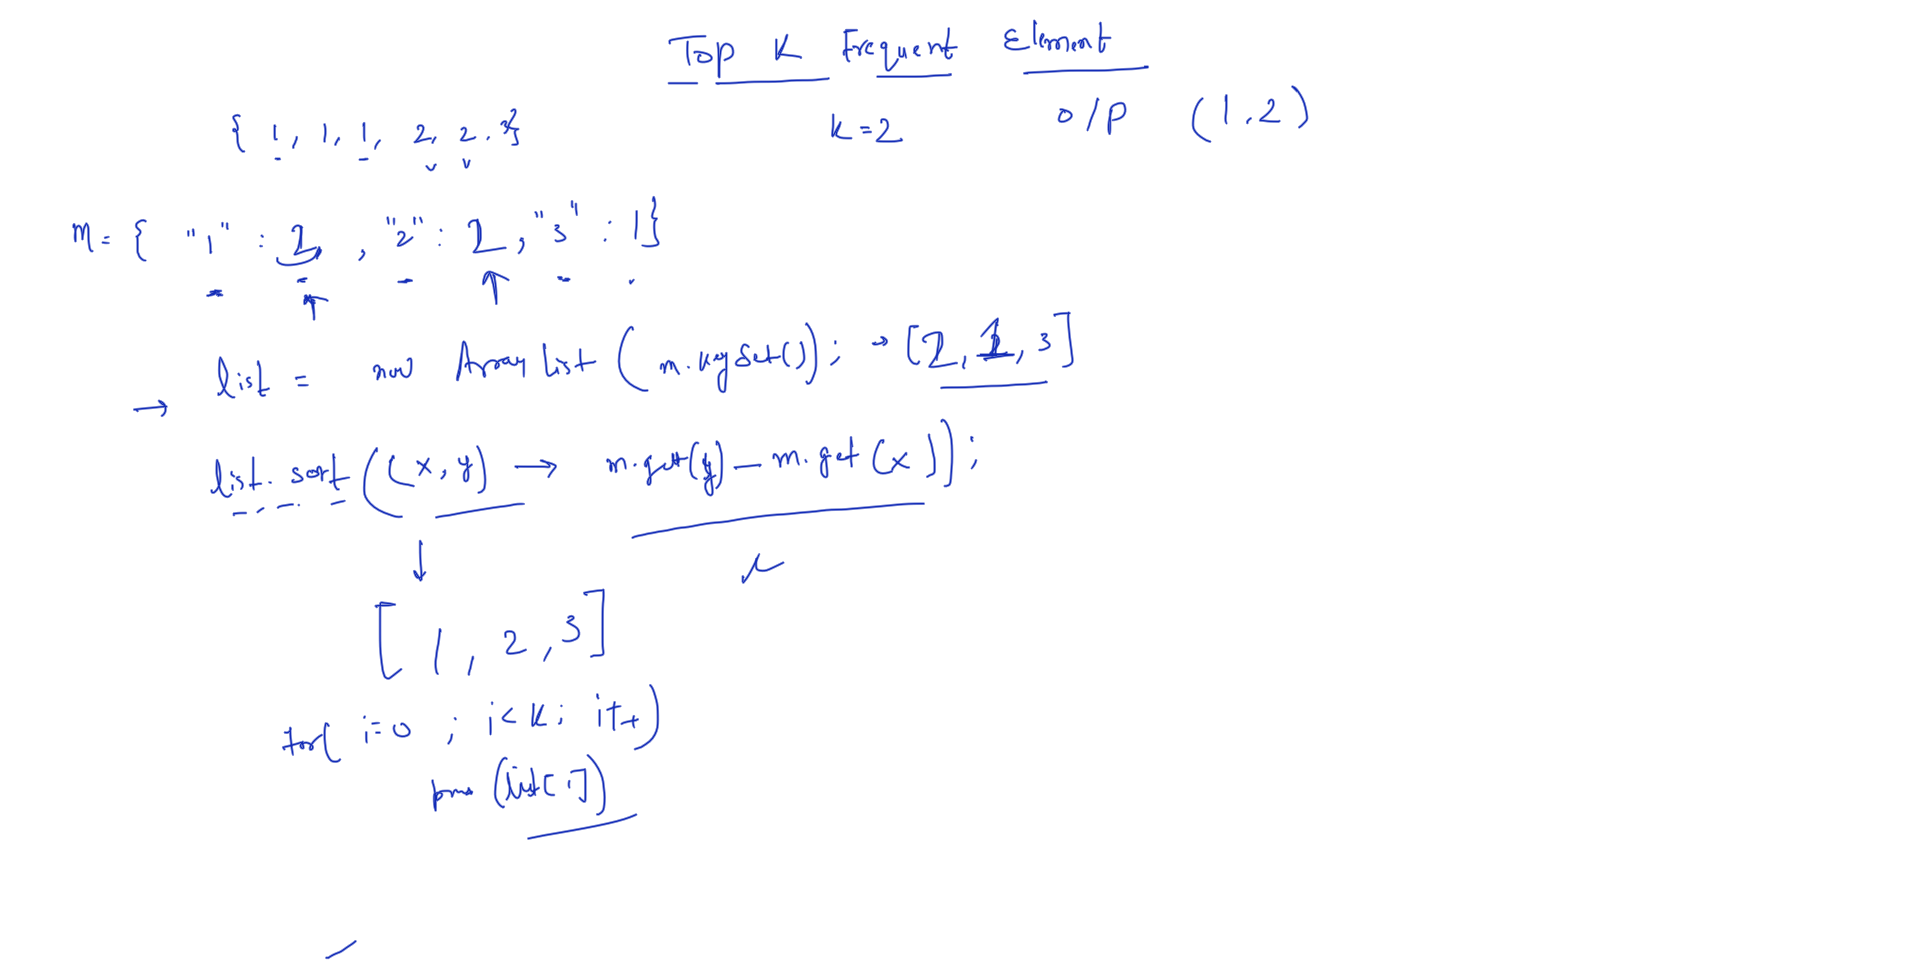 Top K Frequent Element
{ 1, 1, 1, 2, 2, 3}
k=2
O/P (1,2)
m= { "1" : , "2" : 2, "3" : 1}
→ list = new ArrayList (m.keySet()); → [2, 1, 3]
list.sort((x,y) → m.get(y) - m.get(x));
[1, 2, 3]
for( i=0 ; i<k; i++)
(list[i])